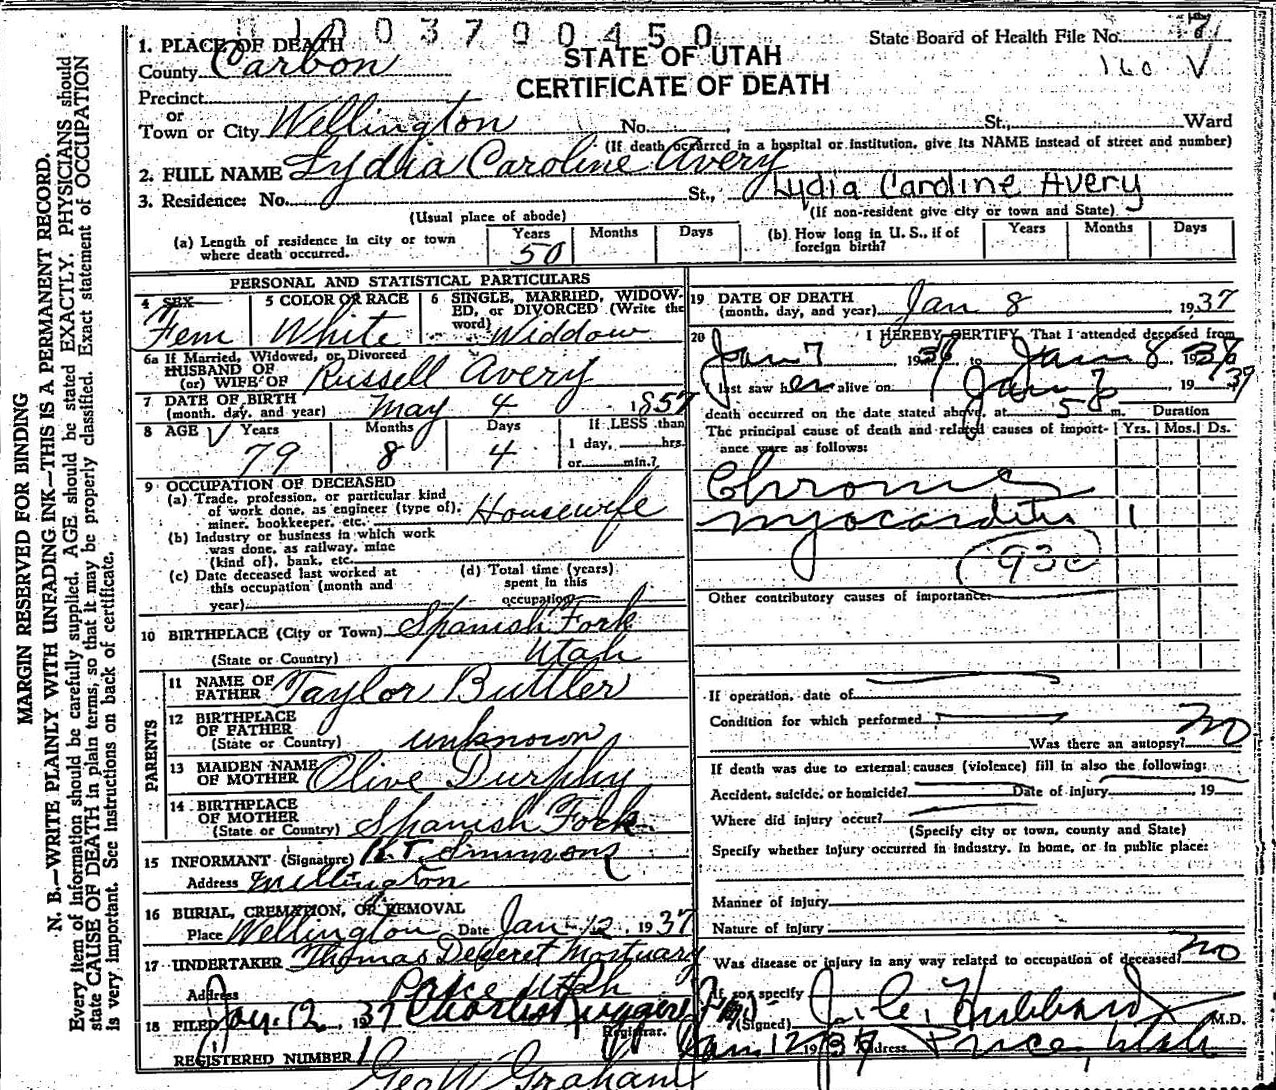 1003700450
STATE OF UTAH
CERTIFICATE OF DEATH
State Board of Health File No. 7
160
1. PLACE OF DEATH
County Carbon
Precinct
or
Town or City Wellington No. , St., Ward
(If death occurred in a hospital or institution, give its NAME instead of street and number)
2. FULL NAME Lydia Caroline Avery
Lydia Caroline Avery
3. Residence: No. St.,
(Usual place of abode) (If non-resident give city or town and State)
(a) Length of residence in city or town where death occurred. Years 50 Months Days
(b) How long in U. S., if of foreign birth? Years Months Days
PERSONAL AND STATISTICAL PARTICULARS
4 SEX Fem
5 COLOR OR RACE White
6 SINGLE, MARRIED, WIDOWED, or DIVORCED (Write the word) Widdow
6a If Married, Widowed, or Divorced
HUSBAND OF
(or) WIFE OF Russell Avery
7 DATE OF BIRTH
(month, day, and year) May 4 1857
8 AGE Years 79 Months 8 Days 4 If LESS than 1 day, hrs. or min.?
9 OCCUPATION OF DECEASED
(a) Trade, profession, or particular kind
of work done, as engineer (type of),
miner, bookkeeper, etc. Housewife
(b) Industry or business in which work
was done, as railway, mine
(kind of), bank, etc.
(c) Date deceased last worked at
this occupation (month and
year)
(d) Total time (years)
spent in this
occupation
10 BIRTHPLACE (City or Town) Spanish Fork
(State or Country) Utah
PARENTS
11 NAME OF
FATHER Taylor Buttler
12 BIRTHPLACE
OF FATHER
(State or Country) unknown
13 MAIDEN NAME
OF MOTHER Olive Durphy
14 BIRTHPLACE
OF MOTHER
(State or Country) Spanish Fork
15 INFORMANT (Signature) Simmons
Address Wellington
16 BURIAL, CREMATION, OR REMOVAL
Place Wellington Date Jan 12, 1937
17 UNDERTAKER Thomas Deseret Mortuary
Address Price Utah
18 FILED Jan. 12, 1937 Charles Ruggeri
Registrar.
REGISTERED NUMBER 1
Geo W Graham
19 DATE OF DEATH
(month, day, and year) Jan 8 1937
20 I HEREBY CERTIFY, That I attended deceased from
Jan 7 1937 to Jan 8 1937
I last saw her alive on Jan 8 1937
death occurred on the date stated above, at 5 m. Duration
The principal cause of death and related causes of importance were as follows: Yrs. Mos. Ds.
Chronic
myocarditis 1
93c
Other contributory causes of importance:
If operation, date of
Condition for which performed
Was there an autopsy? no
If death was due to external causes (violence) fill in also the following:
Accident, suicide, or homicide? Date of injury , 19
Where did injury occur?
(Specify city or town, county and State)
Specify whether injury occurred in industry, in home, or in public place:
Manner of injury
Nature of injury
Was disease or injury in any way related to occupation of deceased? no
If so, specify
(Signed) J. C. Hubbard M.D.
Jan 12 1937 Address Price, Utah
MARGIN RESERVED FOR BINDING
N. B.—WRITE PLAINLY WITH UNFADING INK—THIS IS A PERMANENT RECORD.
Every item of information should be carefully supplied. AGE should be stated EXACTLY. PHYSICIANS should
state CAUSE OF DEATH in plain terms, so that it may be properly classified. Exact statement of OCCUPATION
is very important. See instructions on back of certificate.